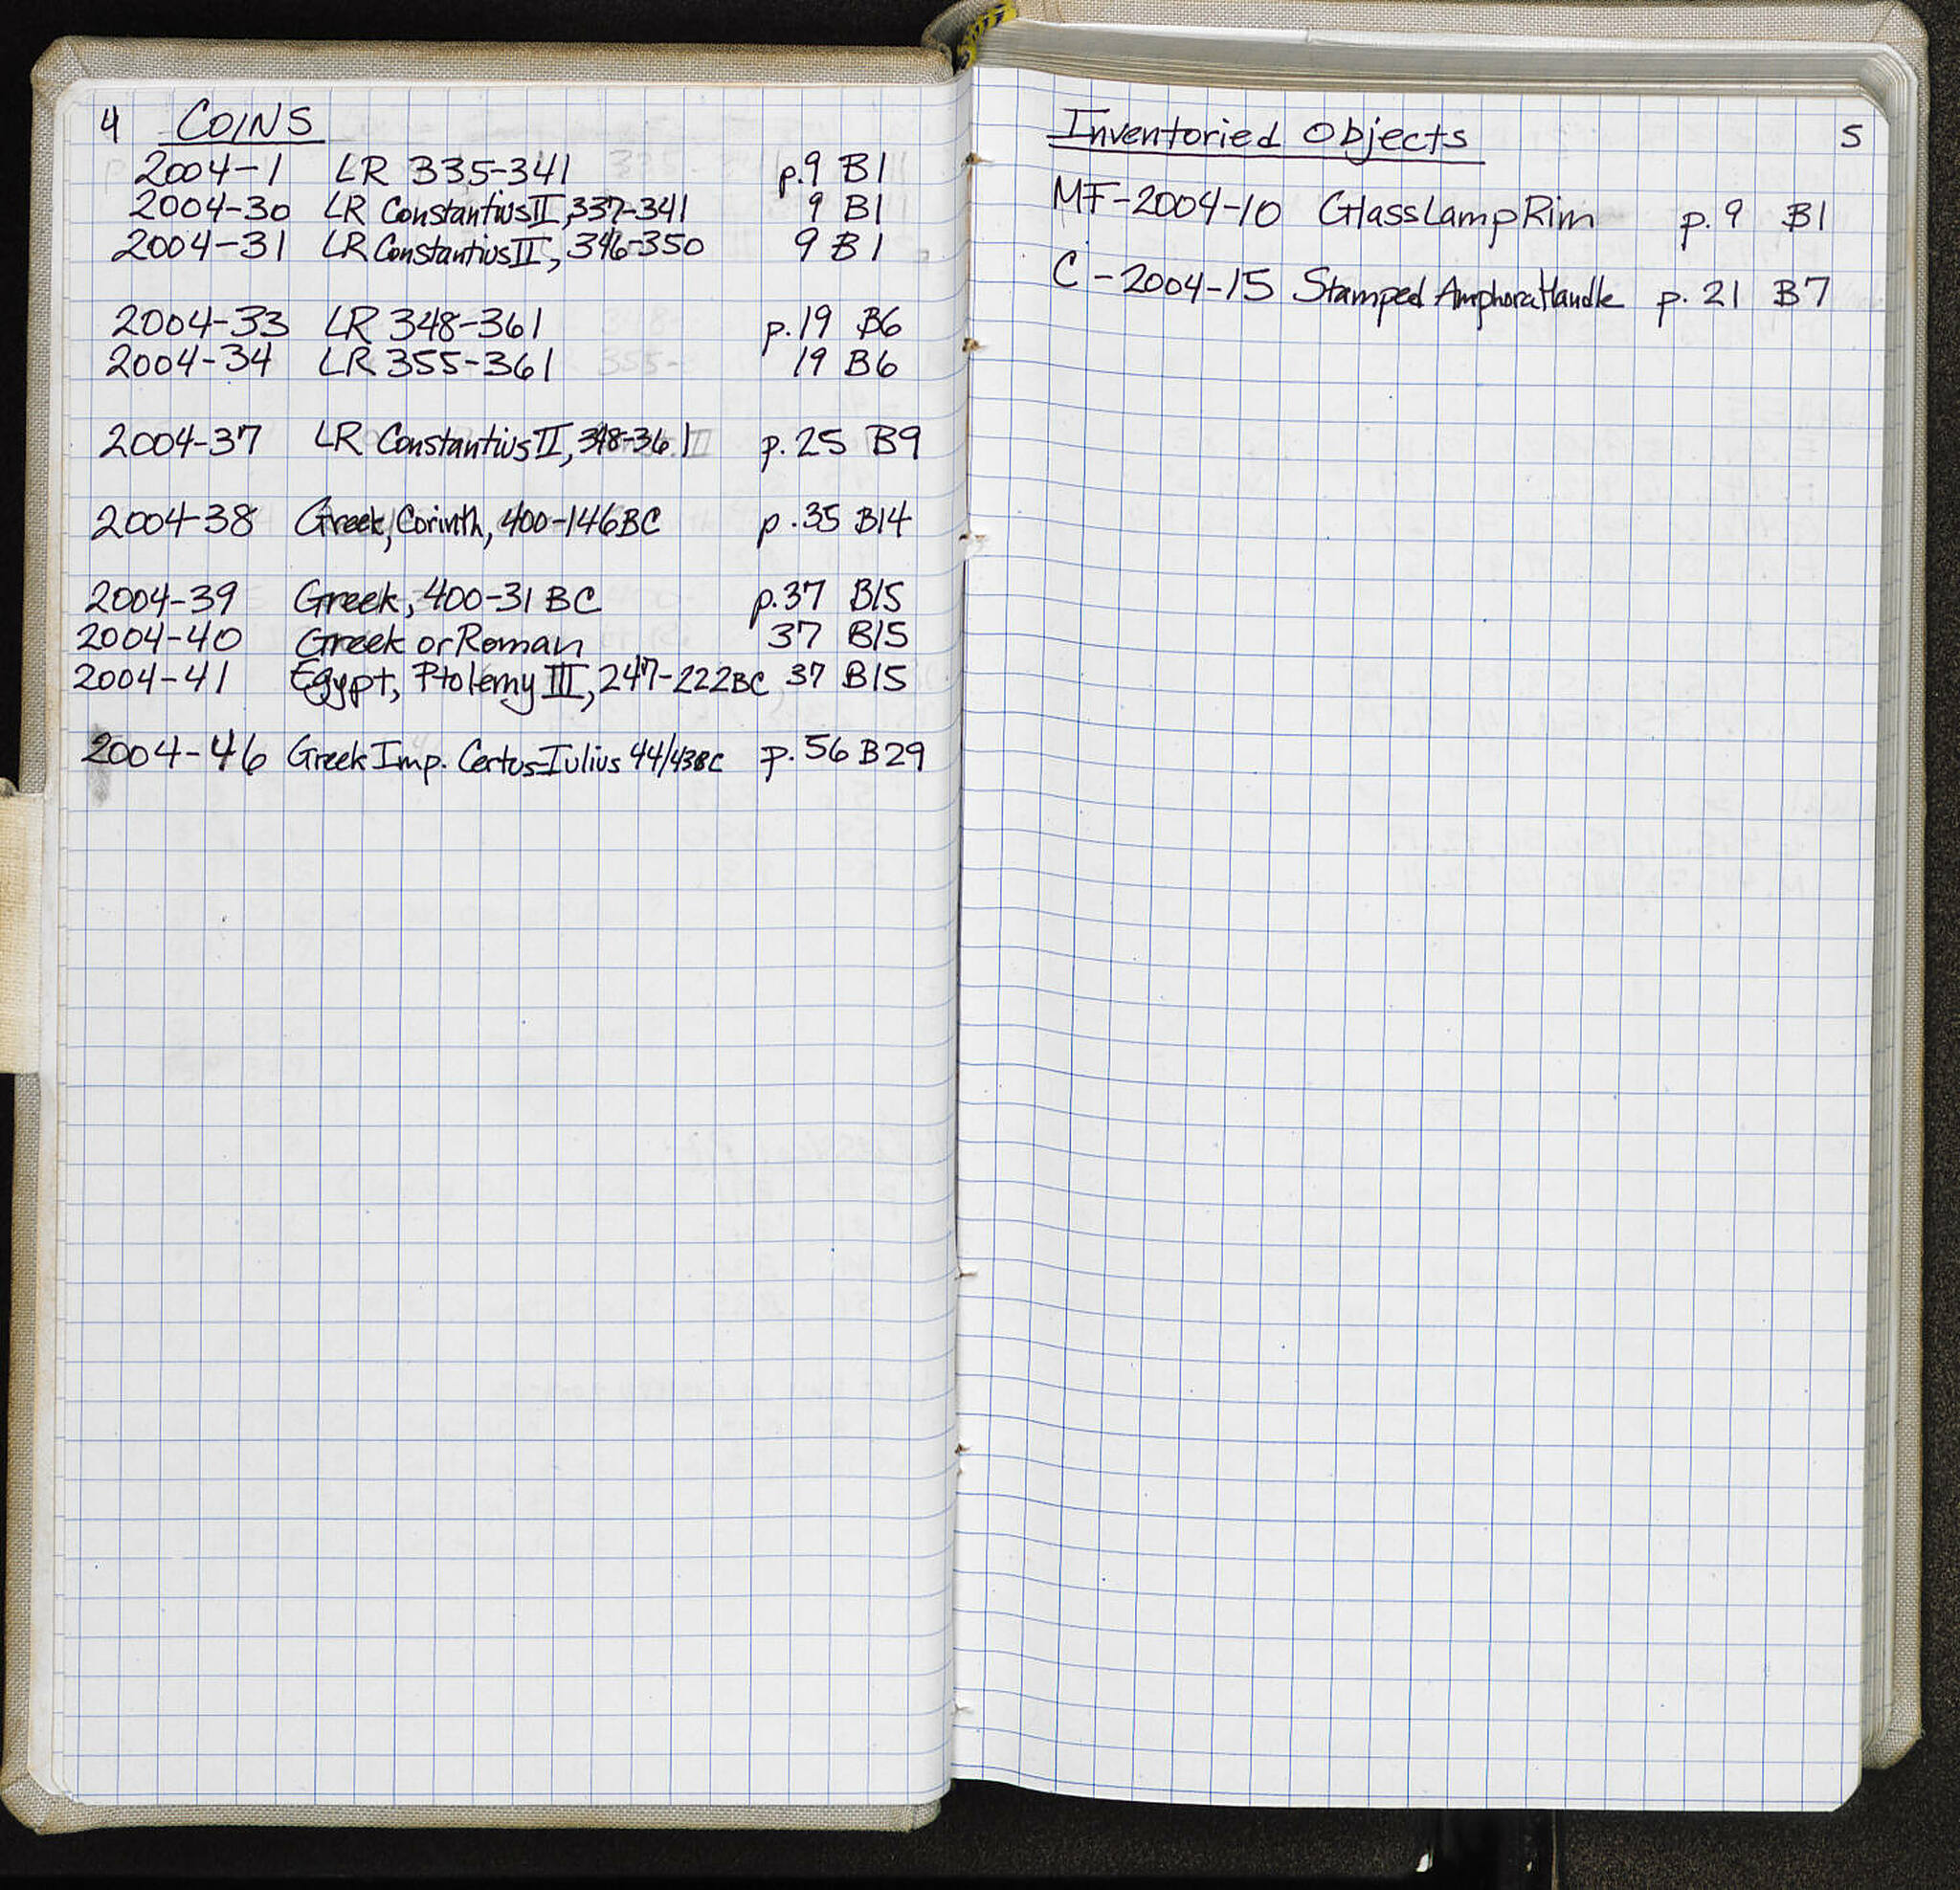 4 COINS
2004-1 LR 335-341 p.9 B1
2004-30 LR Constantius II, 337-341 9 B1
2004-31 LR Constantius II, 346-350 9 B1
2004-33 LR 348-361 p.19 B6
2004-34 LR 355-361 19 B6
2004-37 LR Constantius II, 348-361 p.25 B9
2004-38 Greek, Corinth, 400-146BC p.35 B14
2004-39 Greek, 400-31 BC p.37 B15
2004-40 Greek or Roman 37 B15
2004-41 Egypt, Ptolemy III, 247-222BC 37 B15
2004-46 Greek Imp. Certus-Iulius 44/43BC p.56 B29
Inventoried Objects 5
MF-2004-10 Glass Lamp Rim p.9 B1
C-2004-15 Stamped Amphora Handle p.21 B7